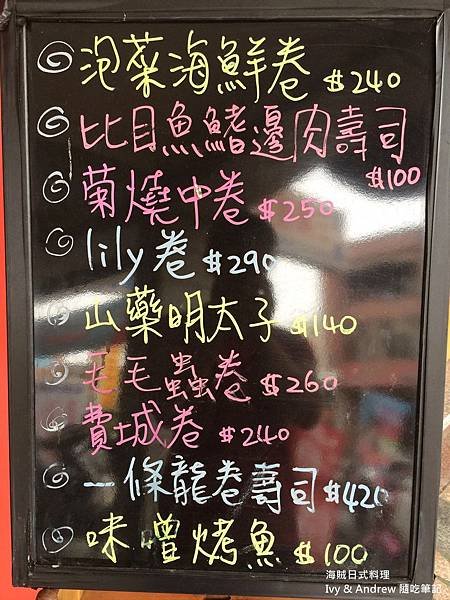 泡菜海鮮卷 $240
比目魚鰭邊肉壽司
$100
菊燒中卷 $250
lily卷 $290
山藥明太子 $140
毛毛蟲卷 $260
費城卷 $240
一條龍卷壽司 $420
味噌烤魚 $100
海賊日式料理
Ivy & Andrew 隨吃筆記